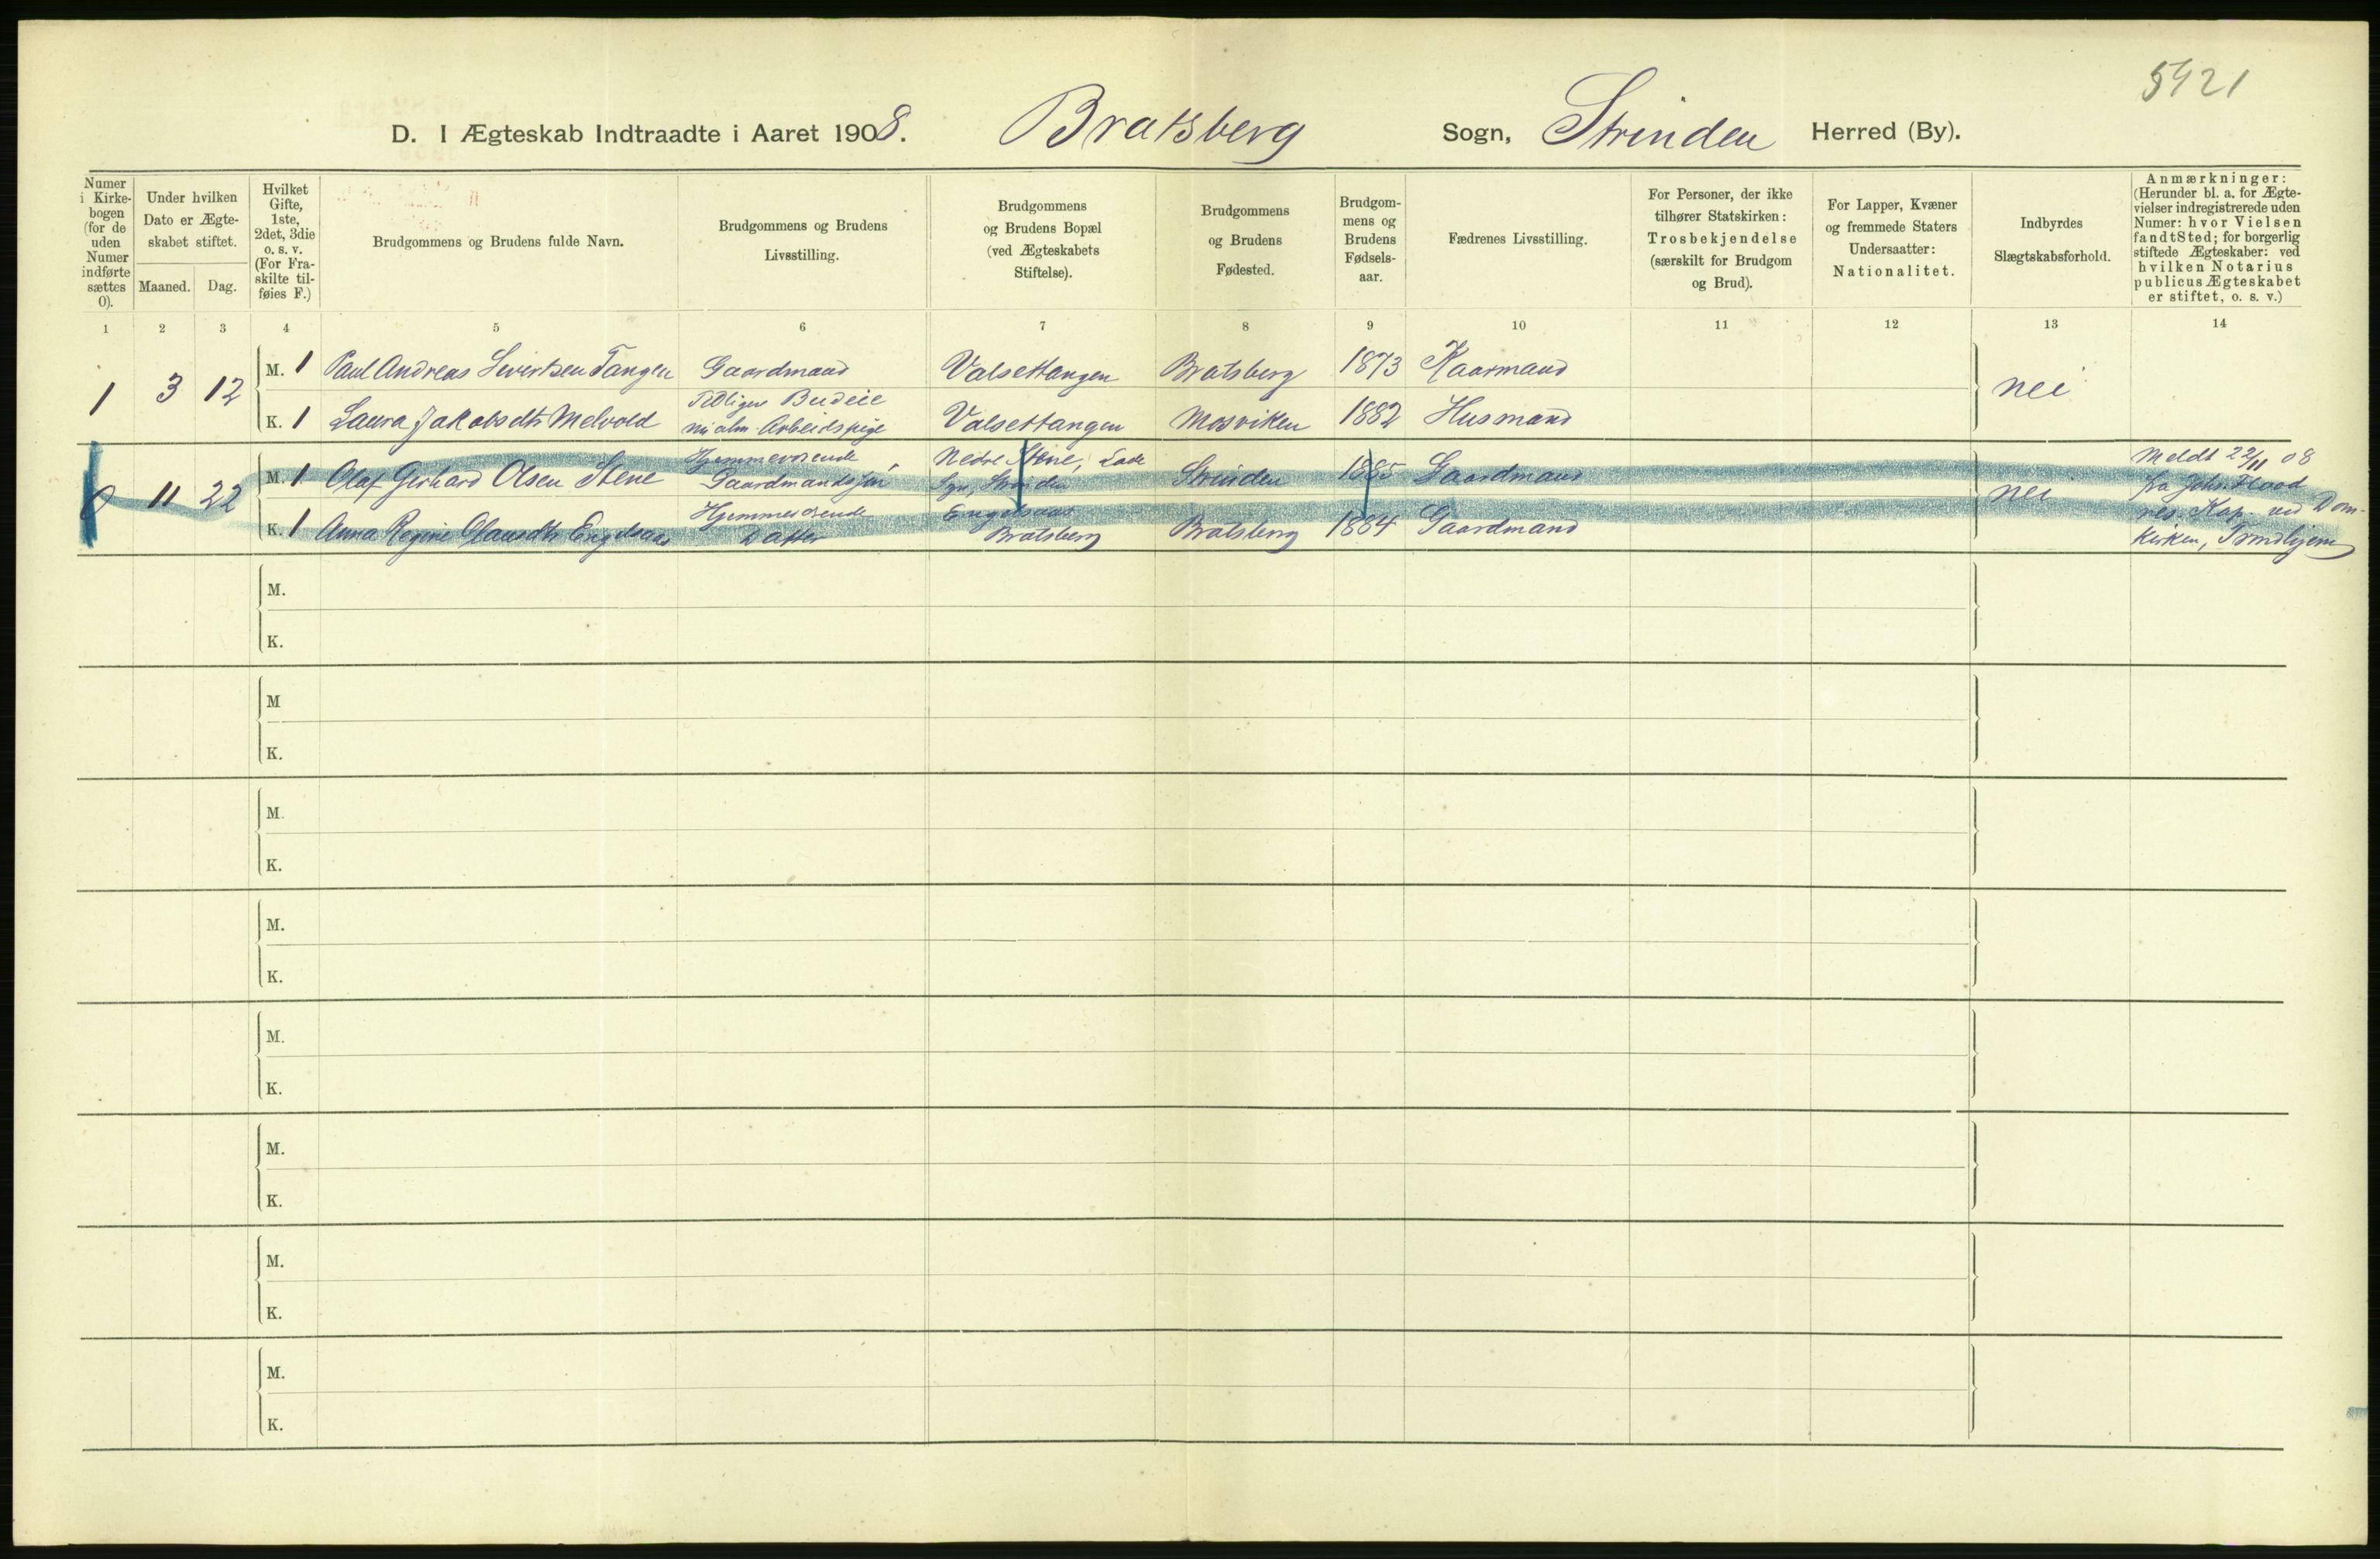 5421
D. I Ægteskab Indtraadte i Aaret 1908. Bratsberg Sogn, Strinden Herred (By).
Numer i Kirke- bogen (for de uden Numer indførte sættes 0).
Under hvilken Dato er Ægte- skabet stiftet.
Maaned. Dag.
Hvilket Gifte, 1ste, 2det, 3die o. s. v. (For Fra- skilte til- føies F.)
Brudgommens og Brudens fulde Navn.
Brudgommens og Brudens Livsstilling.
Brudgommens og Brudens Bopæl (ved Ægteskabets Stiftelse).
Brudgommens og Brudens Fødested.
Brudgom- mens og Brudens Fødsels- aar.
Fædrenes Livsstilling.
For Personer, der ikke tilhører Statskirken: Trosbekjendelse (særskilt for Brudgom og Brud).
For Lapper, Kvæner og fremmede Staters Undersaatter: Nationalitet.
Indbyrdes Slægtskabsforhold.
Anmærkninger: (Herunder bl. a. for Ægte- vielser indregistrerede uden Numer: hvor Vielsen fandt Sted; for borgerlig stiftede Ægteskaber: ved hvilken Notarius publicus Ægteskabet er stiftet, o. s. v.)
1 2 3 4 5 6 7 8 9 10 11 12 13 14
1 3 12 M. 1 Paul Andreas Sivertsen Tangen Gaardmand Valsettangen Bratsberg 1873 Kaarmand nei
K. 1 Laura Jakobsdtr Melvold Tidligere Budeie nu alm. Arbeidspige Valsettangen Mosviken 1882 Husmand
0 11 22 M. 1 Olaf Gerhard Olsen Stene Hjemmeværende Gaardmandssøn Nedre Stene, Lade Sgn, Strinden Strinden 1885 Gaardmand nei
K. 1 Anna Regine Olausdtr Engelsaas Hjemmeværende Datter Engelsaas Bratsberg Bratsberg 1884 Gaardmand
Meldt 22/11 08
fra Johs.
res. Kap. ved Dom-
kirken, Trondhjem
M.
K.
M
K.
M.
K.
M.
K.
M.
K.
M.
K.
M.
K.
M.
K.